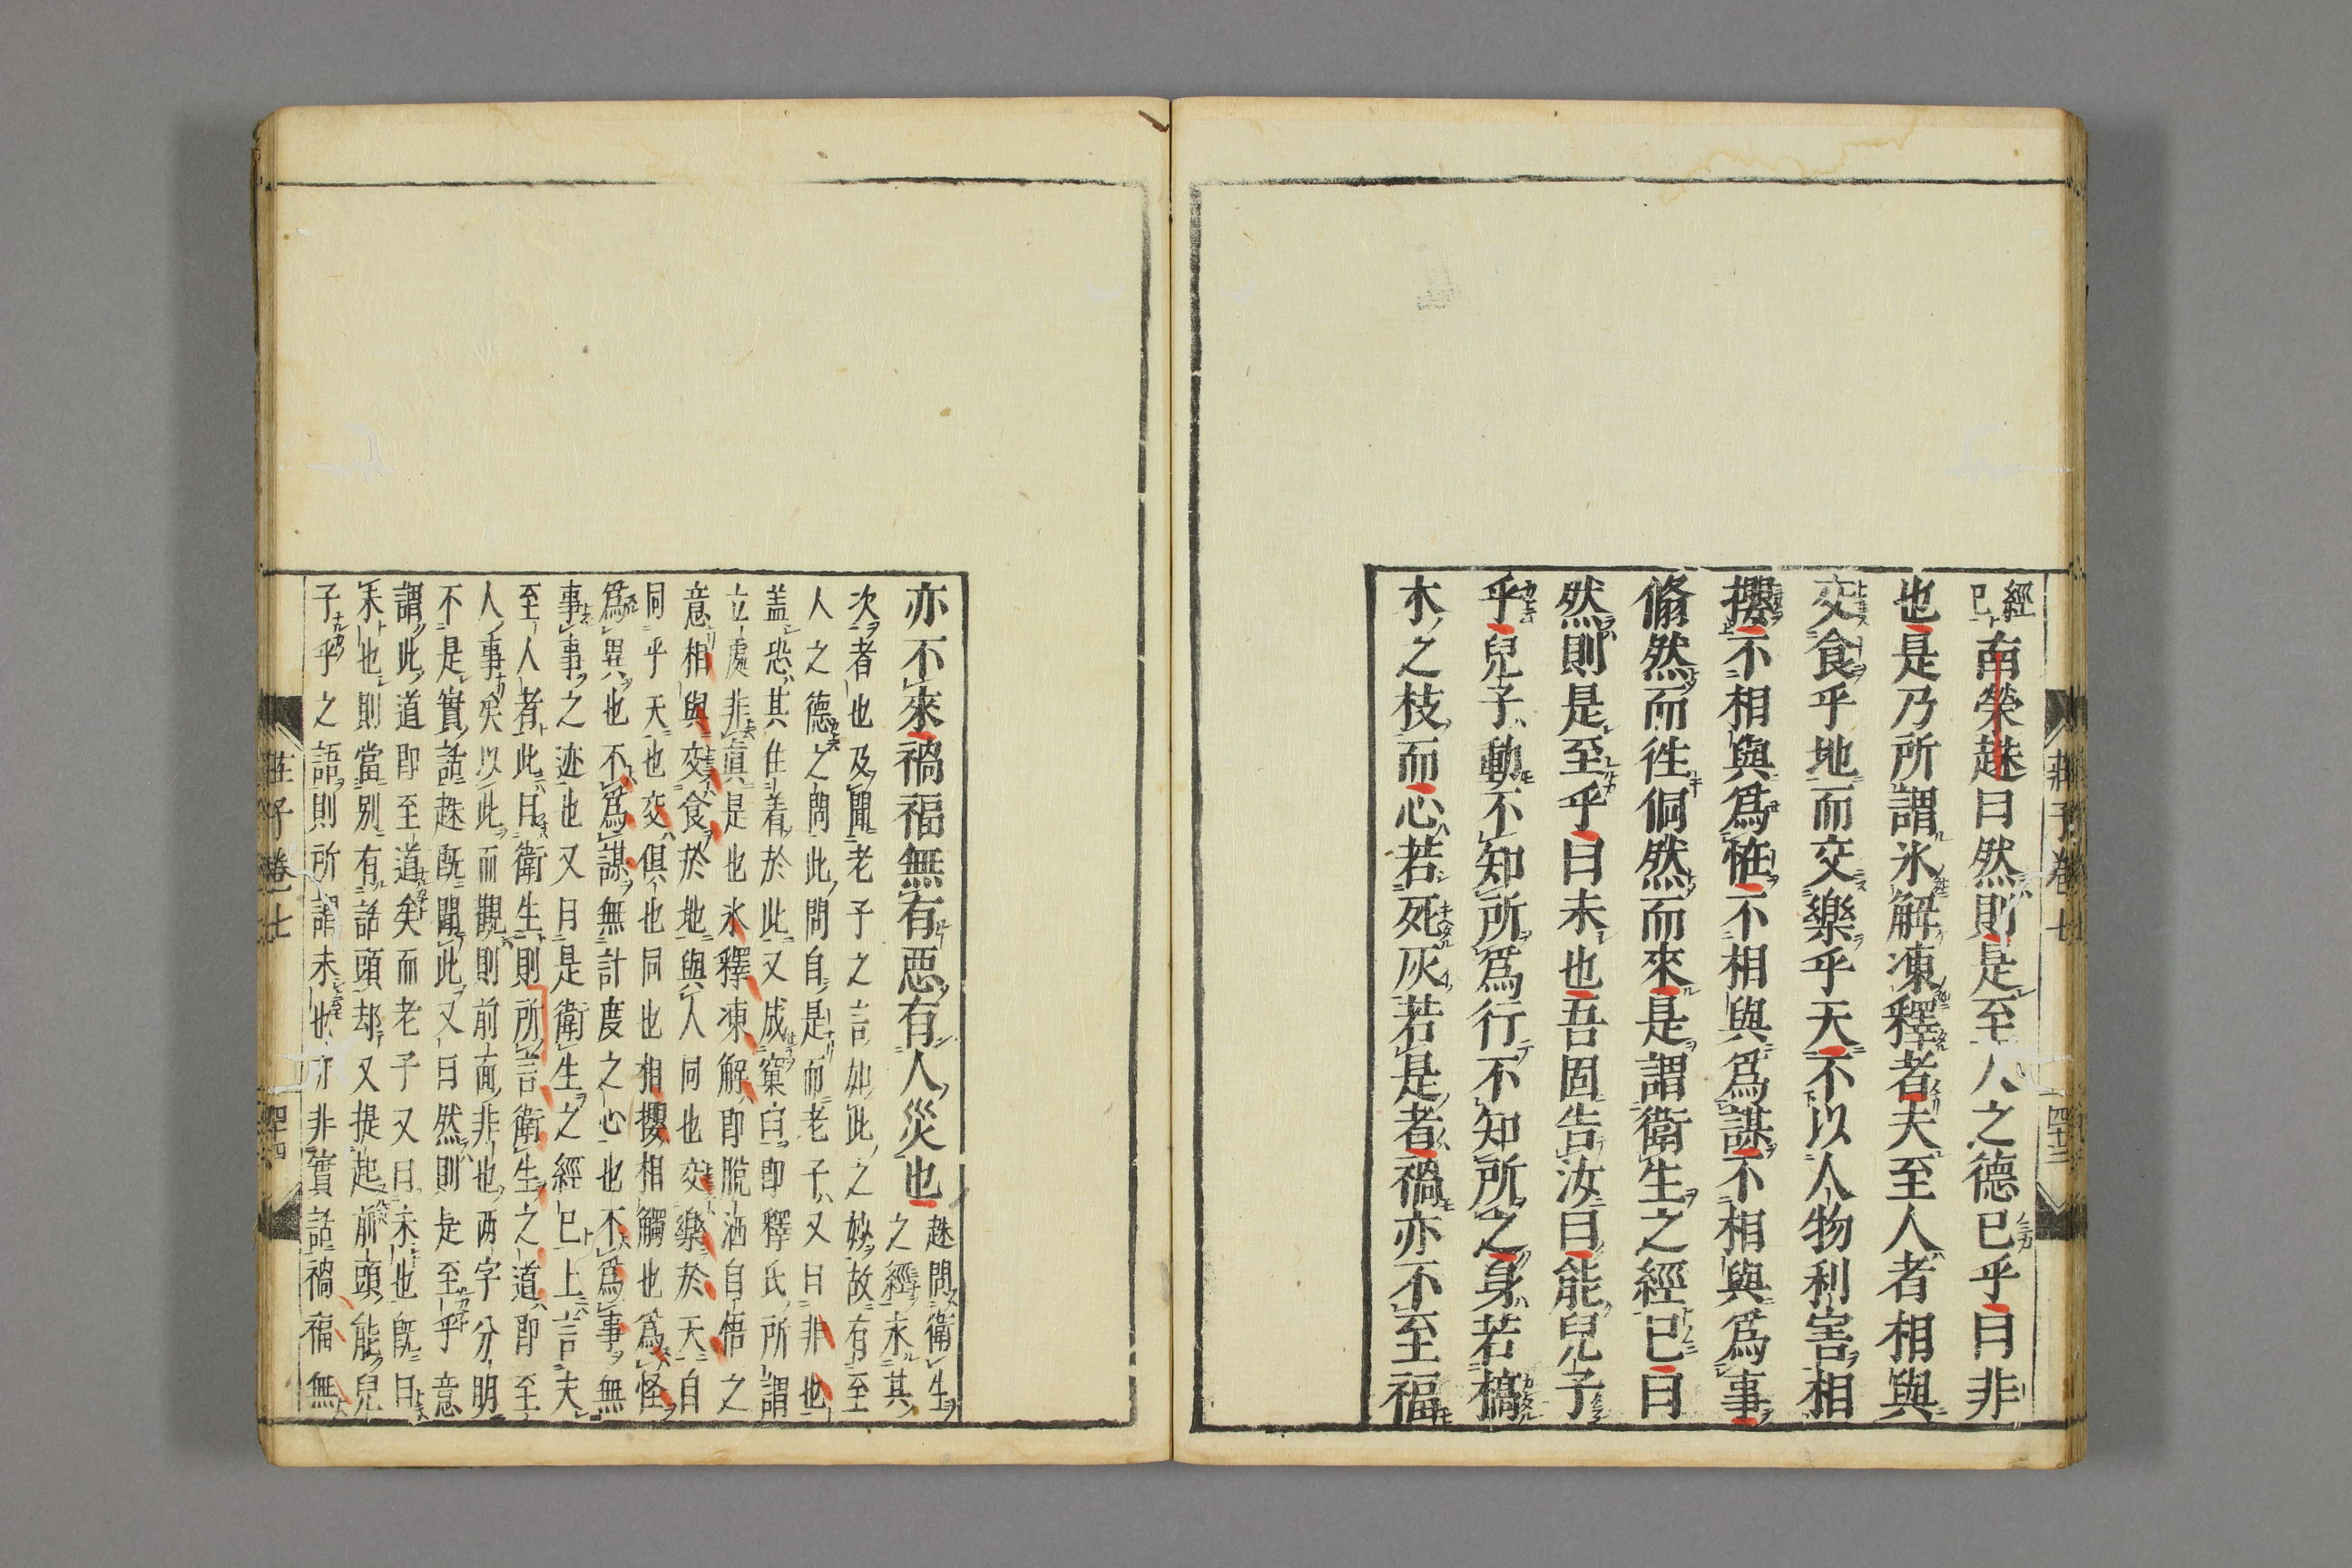 莊子卷七
四十三
經
已
南榮趎曰然則是至人之德已乎曰非
也是乃所謂氷解凍釋者夫至人者相與
交食乎地而交樂乎天不以人物利害相
攖不相與爲恠不相與爲謀不相與爲事
翛然而徃侗然而來是謂衛生之經已曰
然則是至乎曰未也吾固告汝曰能兒子
乎兒子動不知所爲行不知所之身若槁
木之枝而心若死灰若是者禍亦不至福
亦不來禍福無有惡有人災也
趎問衛生
之經求其
次者也及聞老子之言如此之妙故有至
人之德之問此問自是而老子又曰非也
盖恐其住着於此又成窠臼即釋氏所謂
立處非眞是也氷釋凍解即脫洒自悟之
意相與交食於地與人同也交樂於天自
同乎天也交俱也同也相攖相觸也爲怪
爲異也不爲謀無計度之心也不爲事無
事事之迹也又曰是衛生之經已上言夫
至人者此曰衛生則所言衛生之道即至
人事矣以此而觀則前面非也两字分明
不是實話趎旣聞此又曰然則是至乎意
謂此道即至道矣而老子又曰未也旣曰
未也則當别有話頭却又提起前頭能兒
子乎之語則所謂未也亦非實話禍福無
莊子卷七
四十四